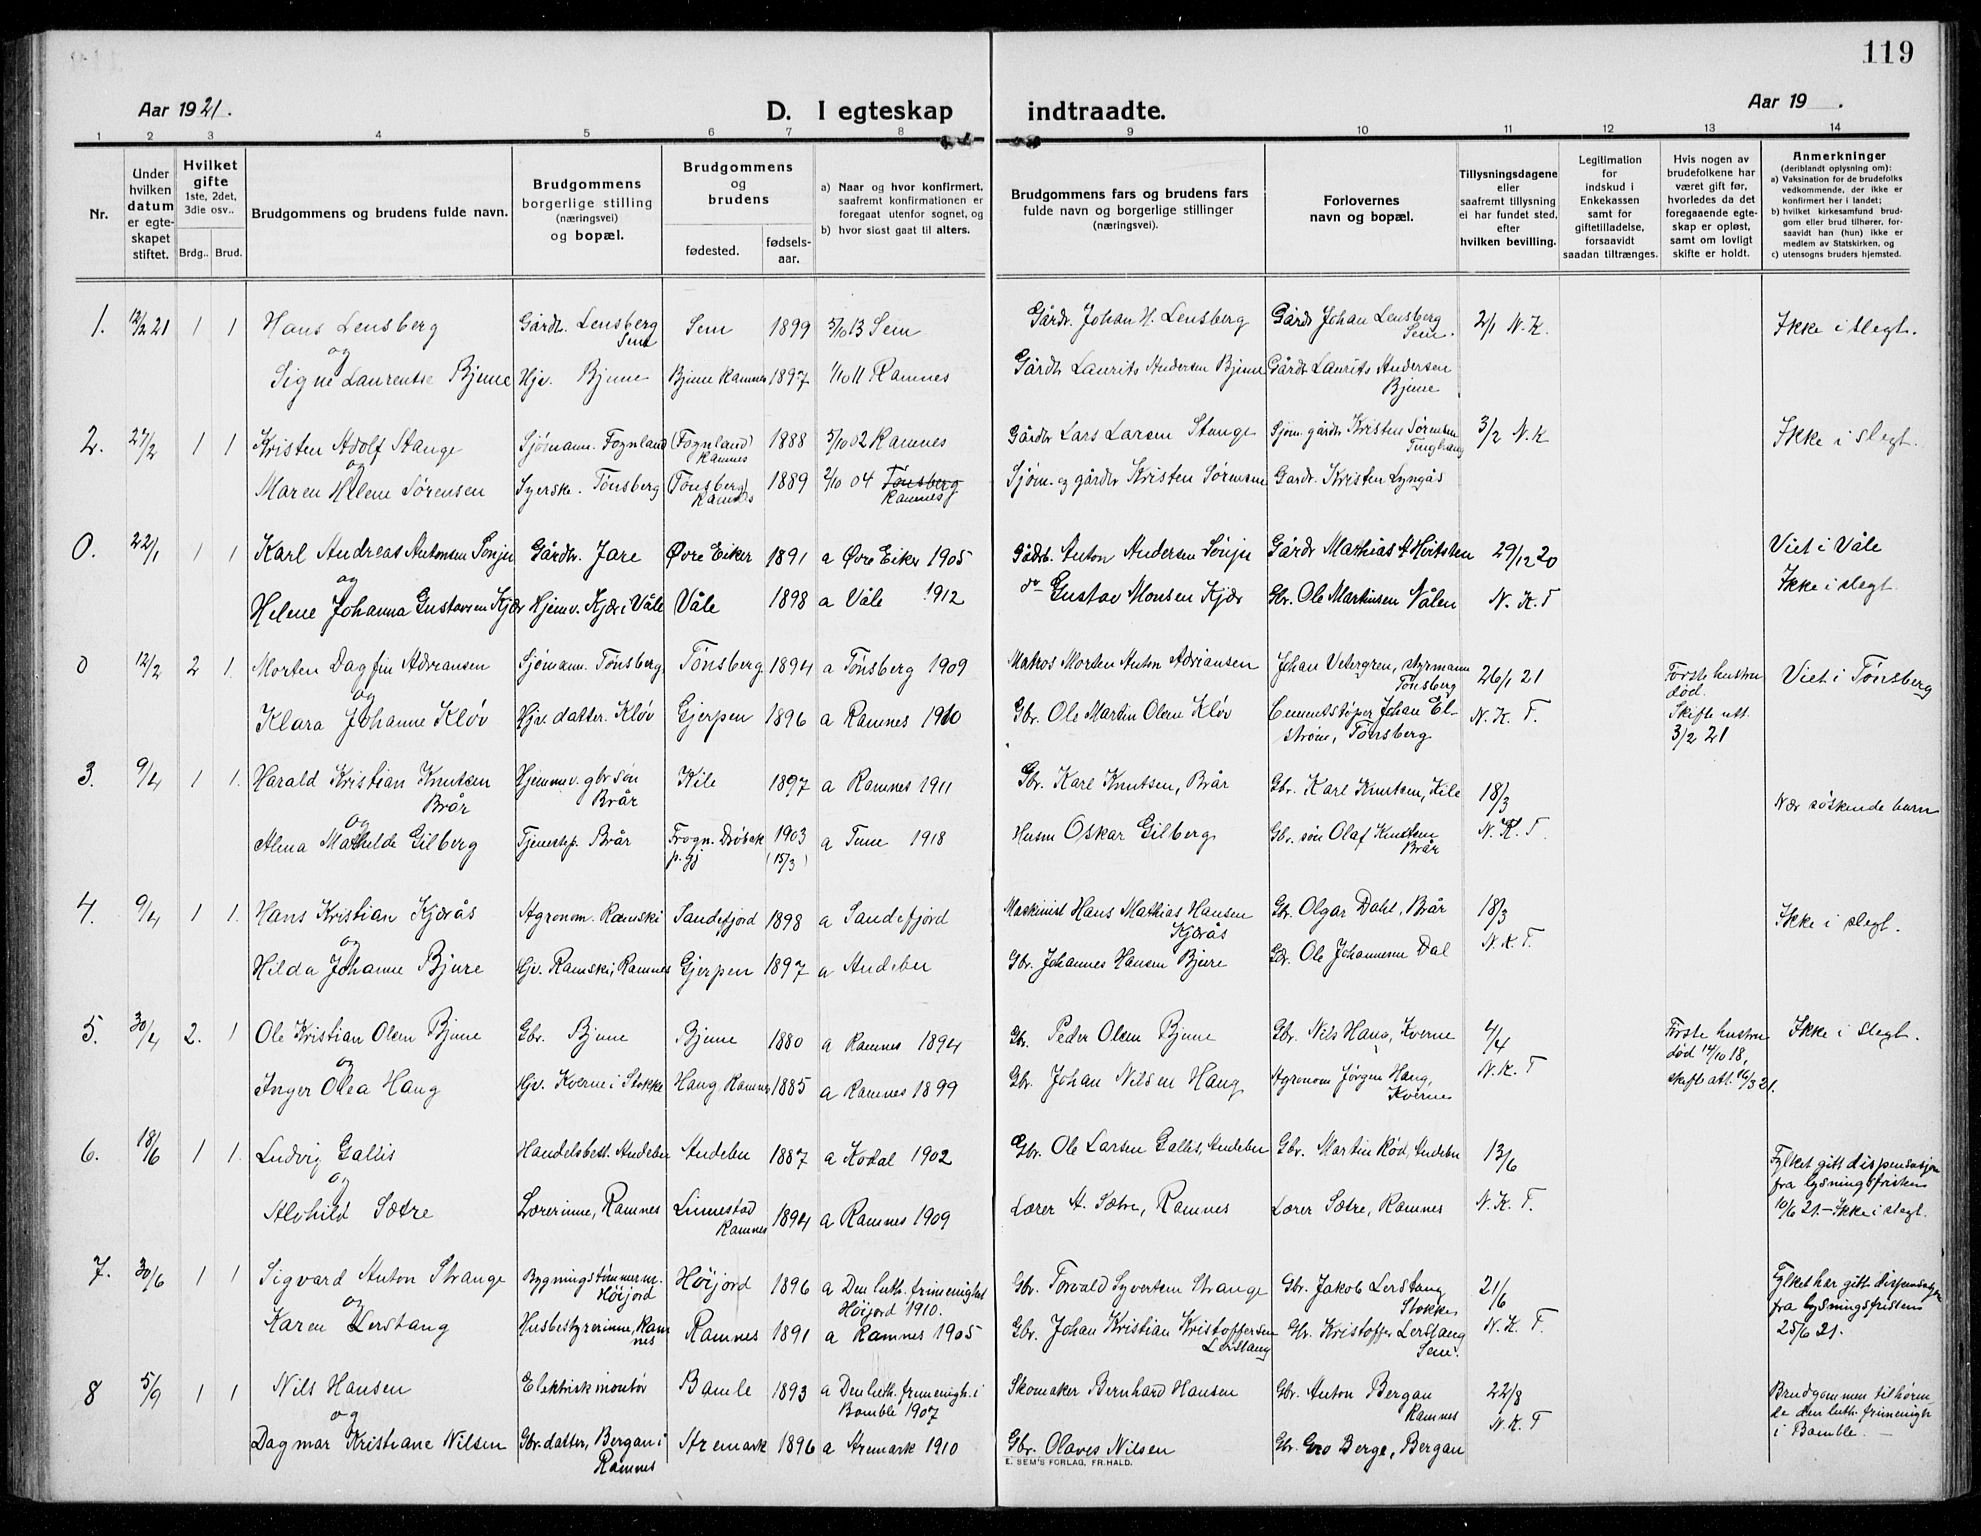 119
Aar 1921. D. I egteskap indtraadte. Aar 19 .
1 2 3 4 5 6 7 8 9 10 11 12 13 14
Nr.
Under hvilken datum er egte- skapet stiftet.
Hvilket gifte 1ste, 2det, 3die osv..
Brdg.. Brud.
Brudgommens og brudens fulde navn.
Brudgommens borgerlige stilling (næringsvei) og bopæl.
Brudgommens og brudens
fødested. fødsels- aar.
a) Naar og hvor konfirmert, saafremt konfirmationen er foregaat utenfor sognet, og
b) hvor sidst gaat til alters.
Brudgommens fars og brudens fars fulde navn og borgerlige stillinger (næringsvei).
Forlovernes navn og bopæl.
Tillysningsdagene eller saafremt tillysning ei har fundet sted, efter hvilken bevilling.
Legitimation for indskud i Enkekassen samt for giftetilladelse, forsaavidt saadan tiltrænges.
Hvis nogen av brudefolkene har været gift før, hvorledes da det foregaaende egte- skap er opløst, samt om lovligt skifte er holdt.
Anmerkninger (deriblandt oplysning om):
a) Vaksination for de brudefolks vedkommende, der ikke er konfirmert her i landet;
b) hvilket kirkesamfund brud- gom eller brud tilhører, for- saavidt han (hun) ikke er medlem av Statskirken, og
c) utensogns bruders hjemsted.
1. 12/2 21 1 1 Hans Lensberg Gårdb. Lensberg Sem Sem 1899 5/10 13 Sem Gårdb. Johan H. Lensberg Gårdb Johan Lensberg Sem. 2/1 N.K. Ikke i slegt.
og
Signe Laurentse Bjune Hjv. Bjune Bjune Ramnes 1897 1/10 11 Ramnes Gårdb Laurits Andersen Bjune Gårdb Laurits Andersen Bjune
2. 27/2 1 1 Kristen Adolf Stange Sjømann. Fognland (Fognland) Ramnes 1888 5/10 02 Ramnes Gårdbr Lars Larsen Stange Sjøm. gårdb Kristen Sørensen 3/2 N.K Ikke i slegt.
og
Maren Helene Sørensen Syerske. Tønsberg (Tønsberg) Ramnes 1889 2/10 04 Tønsberg Ramnes Sjøm. og gårdbr Kristen Sørensen Gardr. Kristen Lyngås
0. 22/1 1 1 Karl Andreas Antonsen Sønju Gårdbr. Jare Øvre Eiker 1891 a Øvre Eiker 1905 Gårdb. Anton Andersen Sønju Gårdb Mathias A Hvitsten 29/12 20 Viet i Våle
og
Helene Johanna Gustavsen Kjær Hjemv. Kjær i Våle Våle 1898 a Våle 1912 do Gustav Monsen Kjær Gbr. Ole Martinsen Vålen N. K. T Ikke i slegt.
0 12/2 2 1. Morten Dagfin Adriansen Sjømann. Tønsberg. Tønsberg. 1894 a Tønsberg 1909 Matros Morten Anton Adriansen Johan Vetergren, styrmann Tønsberg 26/1 21 Første hustru død. Viet i Tønsberg
og
Klara Johanne Kløv Hjv. datter. Kløv Gjerpen 1896 a Ramnes 1910 Gbr. Ole Martin Olsen Kløv Cementstøper Johan El- strøm, Tønsberg N. K. T. Skifte utt. 3/2 21
3. 9/4 1 1. Harald Kristian Knutsen Brår Hjemmev. gbr søn Brår Kile 1897 a Ramnes 1911 Gbr. Karl Knutsen, Brår Gbr. Karl Knutsen, Kile 18/3 Nær søskende barn
og
Alma Mathilde Gilberg Tjenestep. Brår Frogn. Drøbak p. gj 1903 (15/3) a Tune 1918 Husm Oskar Gilberg Gbr. søn Olaf Knutsen Brår N. K. T.
4. 9/4 1 1. Hans Kristian Kjærås Agronom. Ramski Sandefjord 1898 a Sandefjord Maskinist Hans Mathias Hansen Kjærås Gbr. Olgar Dahl, Brår 18/3 Ikke i slegt.
og
Hilda Johanne Bjure Hjv. Ramski, Ramnes Gjerpen 1897 a Andebu Gbr. Johannes Hansen Bjure Gbr. Ole Johannesen Dal N. K. T.
5. 30/4 2. 1 Ole Kristian Olsen Bjune Gbr. Bjune Bjune 1880 a Ramnes 1894 Gbr. Peder Olsen Bjune Gbr. Nils Haug, Kverne 4/4 Første hustru død 14/10 18, Ikke i slegt.
og
Inger Olea Haug Hjv. Kverne i Stokke Haug Ramnes 1885 a Ramnes 1899 Gbr. Johan Nilsen Haug Agronom Jørgen Haug, Kverne N. K. T skifte att. 16/3 21.
6. 18/6 1 1. Ludvig Gallis Handelsbest. Andebu Andebu 1887 a Kodal 1902 Gbr. Ole Larsen Gallis, Andebu Gbr. Martin Rød, Andebu 13/6 Fylket gitt dispensasjon fra lysningsfristen
og
Alvhild Sætre Lærerinne, Ramnes Linnestad Ramnes 1894 a Ramnes 1909 Lærer A. Sætre, Ramnes Lærer Sætre, Ramnes N. K. T. 10/6 21. - Ikke i slegt.
7. 30/6 1 1 Sigvard Anton Strange Bygningstømmerm. Høijord Høijord 1896 a Den luth. frimenighet Høijord 1910. Gbr. Torvald Syvertsen Strange Gbr. Jakob Lerstang Stokke 21/6 Fylket har gitt dispensasjon fra lysningsfristen
og
Karen Lerstang Husbestyrerinne, Ramnes Ramnes 1891 a Ramnes 1905 Gbr. Johan Kristian Kristoffersen Lerstang Gbr. Kristoffer Lerstang Sem. N. K. T. 25/6 21.
8 5/9 1 1 Nils Hansen Elektrisk montør Bamle 1893 a Den luth. frimenigh. i Bamble 1907 Skomaker Bernhard Hansen Gbr. Anton Bergan Ramnes 22/8 Brudgommen tilhøren- de den luth. frimenigh
og
Dagmar Kristiane Nilsen Gbr. datter, Bergan i Ramnes Aremark 1896 a Aremark 1910 Gbr. Olaves Nilsen Gbr. Gro Berge, Bergan N. K. T i Bamble. -
E. SEM'S FORLAG, FR.HALD.